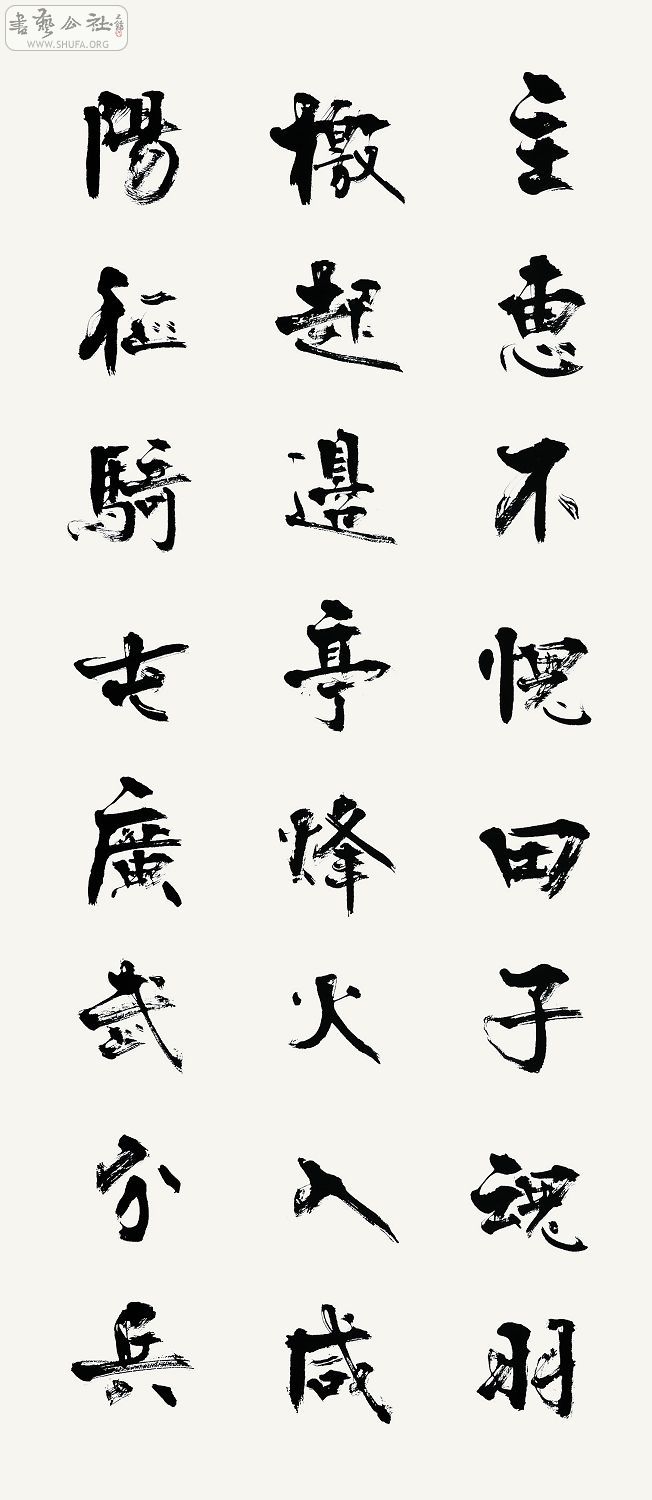 書藝公社
WWW.SHUFA.ORG
主惠不愧田子魂羽
檄起邊亭烽火入咸
陽征騎屯廣武分兵